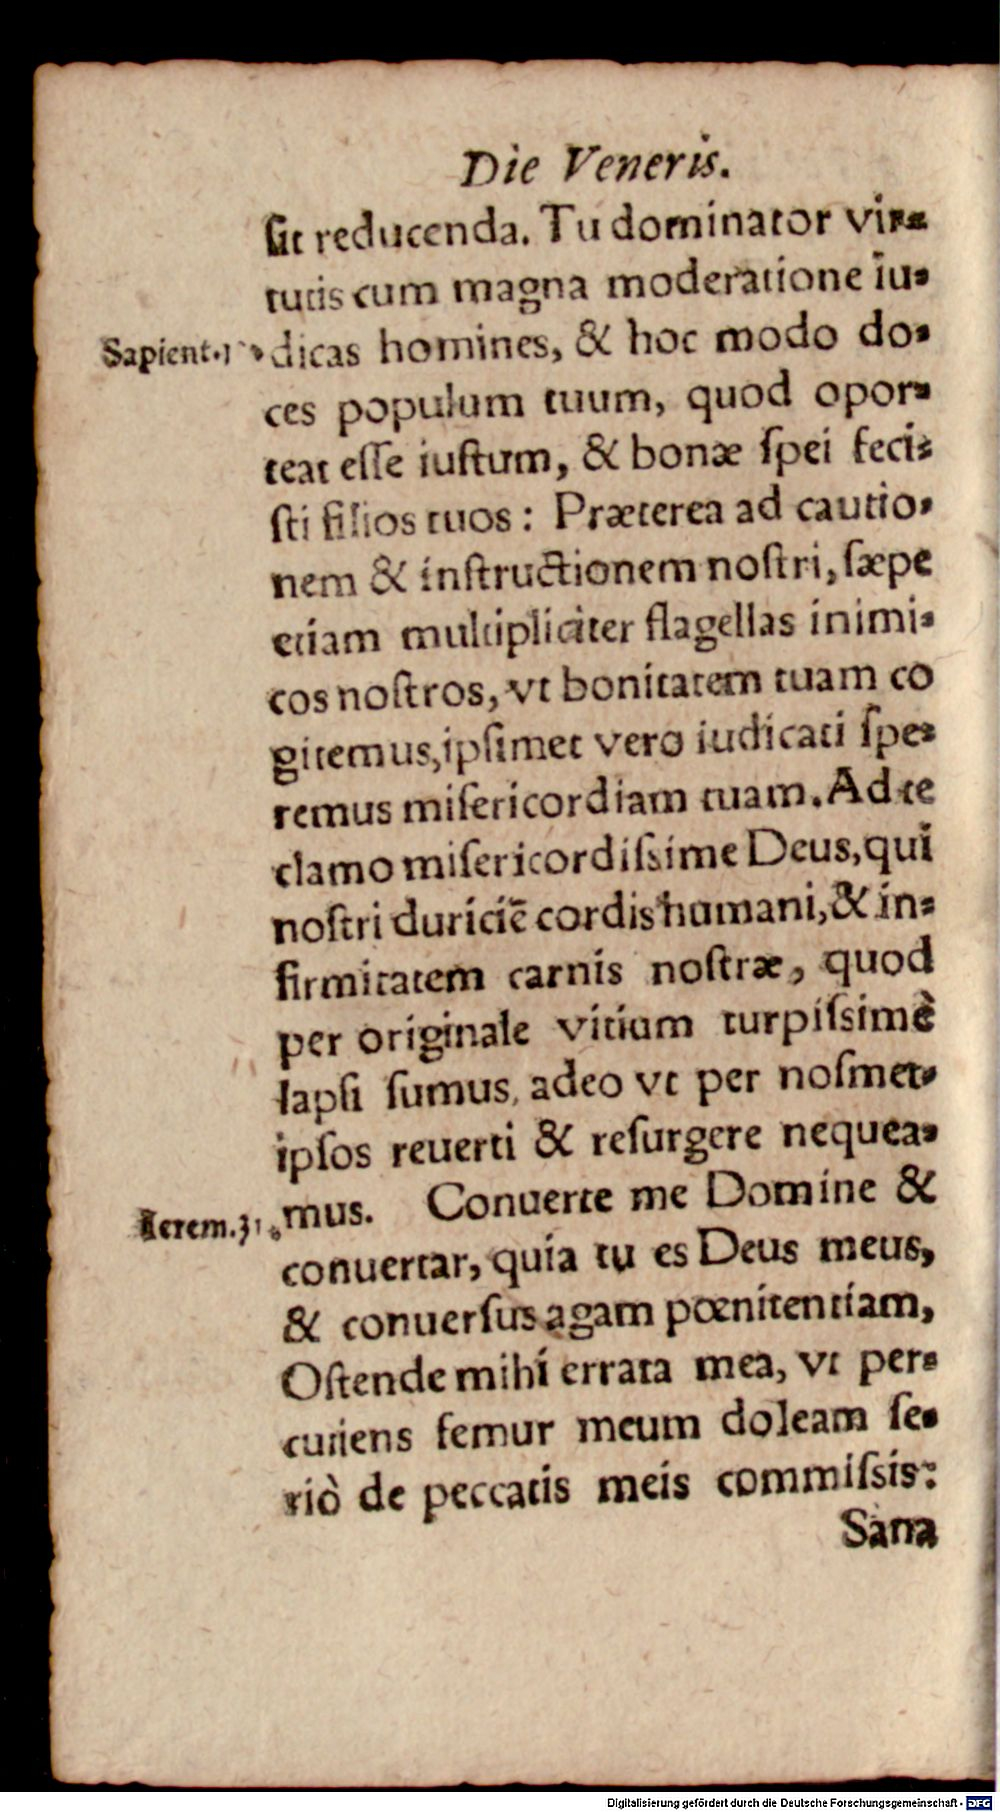 Die Veneris.
ſit reducenda. Tu dominator vir-
tutis cum magna moderatione iu-
Sapient.
dicas homines, & hoc modo do-
ces populum tuum, quod opor-
teat eſſe iuſtum, & bonæ ſpei feci-
ſti filios tuos: Præterea ad cautio-
nem & inſtructionem noſtri, ſæpe
etiam multipliciter flagellas inimi-
cos noſtros, vt bonitatem tuam co
gitemus, ipſimet vero iudicati ſpe-
remus miſericordiam tuam. Ad te
clamo miſericordiſsime Deus, qui
noſtri duriciē cordis humani, & in-
firmitatem carnis noſtræ, quod
per originale vitium turpiſsimè
lapſi ſumus, adeo vt per noſmet-
ipſos reuerti & reſurgere nequea-
Ierem.31.
mus. Conuerte me Domine &
conuertar, quia tu es Deus meus,
& conuerſus agam pœnitentiam,
Oſtende mihi errata mea, vt per-
cutiens femur meum doleam ſe-
riò de peccatis meis commiſsis:
Sana
Digitalisierung gefördert durch die Deutsche Forschungsgemeinschaft - DFG